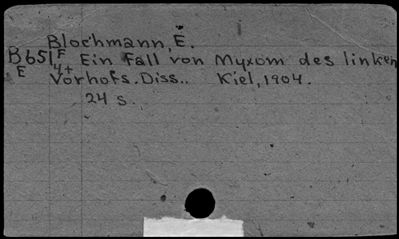 Blochmann, E.
B651F Ein Fall von Myxom des linken
E 4+ Vorhofs. Diss.. Kiel, 1904.
24 s.